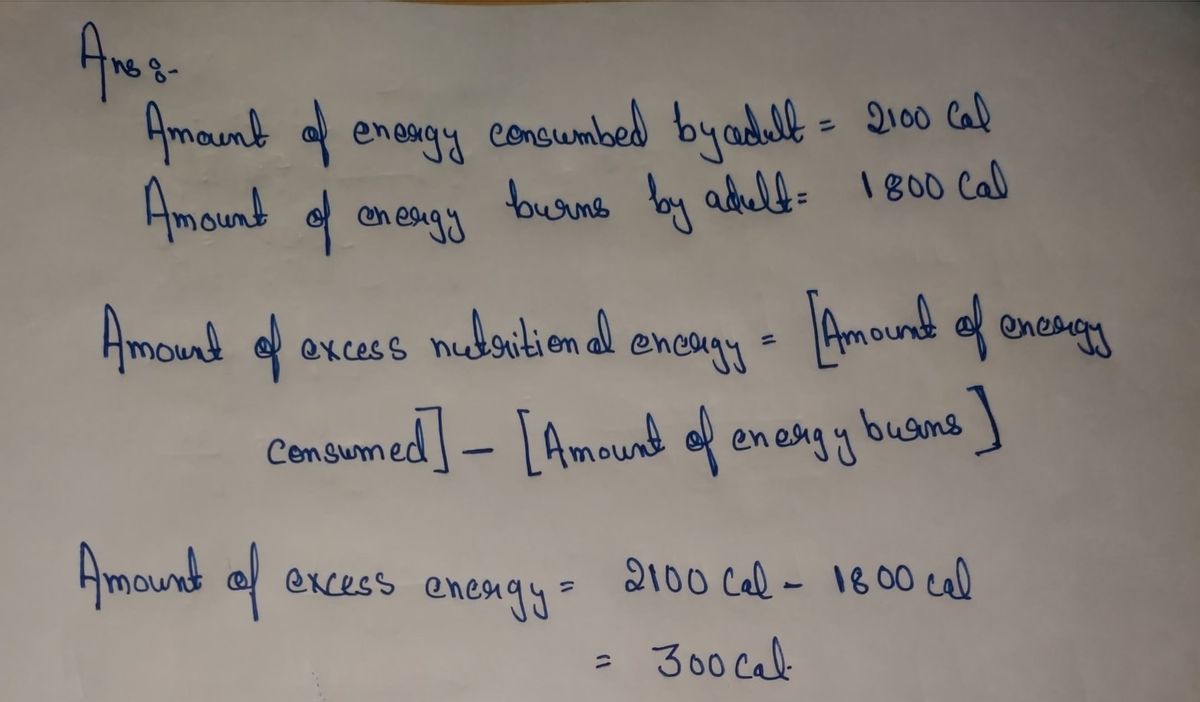 Ans :-
Amount of energy consumbed by adult = 2100 Cal
Amount of energy burns by adult = 1800 Cal
Amount of excess nutritional energy = [Amount of energy
consumed] - [Amount of energy burns]
Amount of excess energy = 2100 Cal - 1800 cal
= 300 Cal.